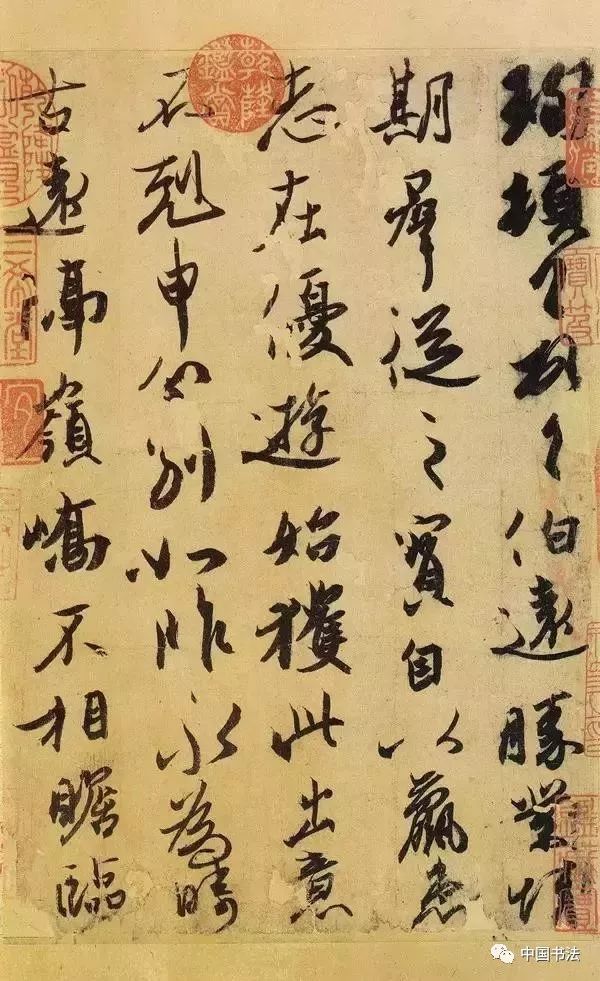 珣頓首頓首伯遠勝業情
期羣從之寶自以羸患
志在優遊始獲此出意
不剋申分別如昨永為疇
古遠隔嶺嶠不相瞻臨
乾隆鑑賞
三希堂
中国书法